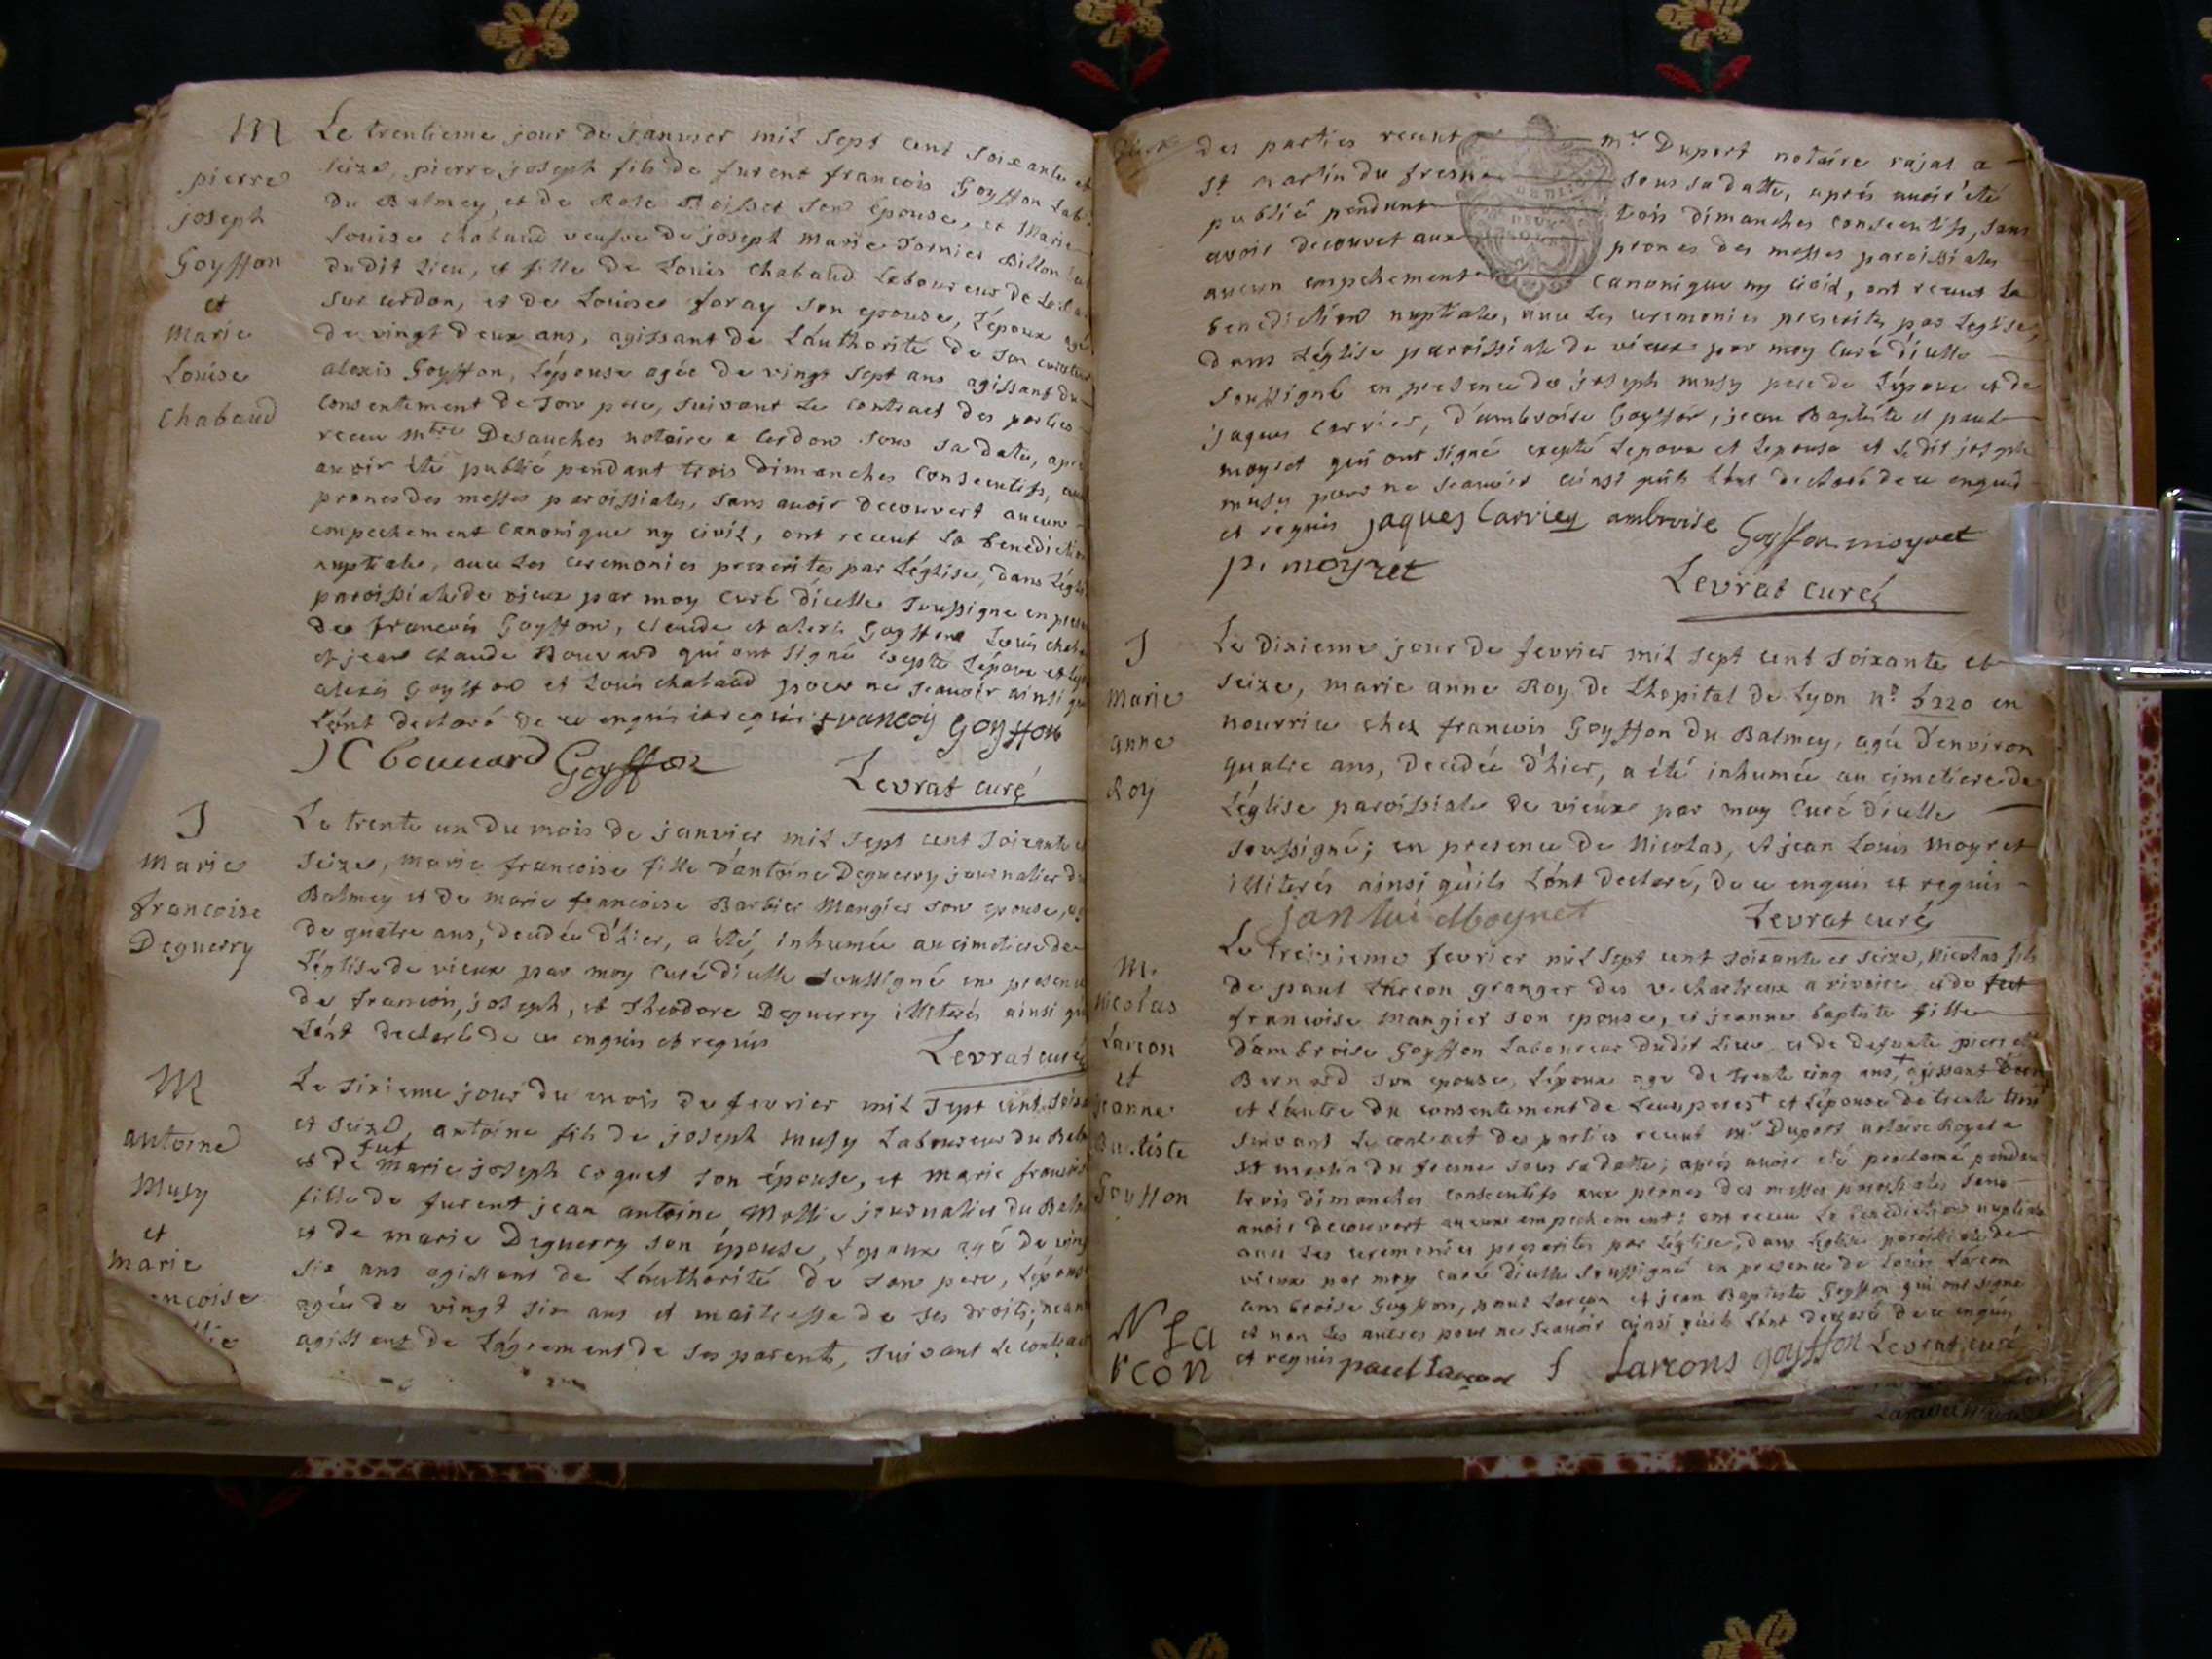 M
pierre
joseph
Goyffon
et
Marie
Louise
Chabaud
Le trentieme jour de Janvier mil sept cent soixante et
seize, pierre joseph fils de furent francois Goyffon
du Balmey, et de Rose Roisset son épouse, et Marie
Louise chabaud veufve de joseph Marie Tornier Billon
dudit Lieu, et fille de Louis Chabaud Laboureur de
sur cerdon, et de Louise foray son epouse, L'époux agé
de vingt deux ans, agissant de L'authorité de son curateur
alexis Goyffon, L'épouse agée de vingt sept ans agissant du
consentement de son pere, suivant le contract des parties
receu mtre Desauches notaire a Cerdon sous sa date,
avoir été publié pendant trois dimanches consecutifs,
prones des messes paroissiales, sans avoir decouvert aucun
empechement canonique ny civil, ont receut la benediction
nuptiale, avec les ceremonies prescrites par L'église, dans
paroissiale de vieux par moy Curé d'icelle soussigne en
de francois Goyffon, claude et alexis Goyffon Louis
et jean claude Bouvard qui ont signé excepté L'époux et
alexis Goyffon et Louis chabaud pour ne scauoir ainsi
L'ont declaré de ce enquis et requis francois Goyffon
JC bouuard Goyffon
Levrat curé
J
Marie
francoise
Deguerry
Le trente un du mois de janvier mil sept cent soixante
seize, marie francoise fille d'antoine Deguerry journalier
Balmey et de marie francoise Barbier Mangier son epouse,
de quatre ans, decedée d'hier, a été inhumée au cimetiere de
L'église de vieux par moy curé d'icelle soussigné en
de francois, joseph, et Theodore Deguerry illiterés ainsi
L'ont declaré de ce enquis et requis
Levrat curé
M
antoine
Musy
et
marie
Le sixieme jour du mois de fevrier mil sept cent
et seize, antoine fils de joseph musy Laboureur du
fut
et de marie joseph coquet son épouse, et marie
fille de furent jean antoine Mollie journalier du
et de marie Deguerry son épouse, L'epoux agé de
six ans agissant de L'authorité de son pere,
agée de vingt six ans et maitresse de ses droits,
agissant de L'agrement de ses parents, suivant le contract
des parties receut mr Duport notaire rajal a
St martin du fresne sous sa datte, aprés auoir été
publié pendant trois dimanches consecutifs, sans
avoir decouvet aux prones des messes paroissiales
aucun empechement canonique ny civil, ont receut la
benediction nuptiale, auec les ceremonies prescrites par L'eglise,
dans L'église paroissiale de vieux par moy Curé d'icelle
soussigné en presence de joseph musy pere de L'époux et de
jaques Carrier, d'ambroise Goyffon, jean Baptiste et paul
moyret qui ont signé excepté L'epoux et L'epouse et Ledit joseph
musy pour ne scauoir ainsi qu'ils L'ont declaré de ce enquis
et requis jaques Carrier ambroise Goyffon moyret
p. moyret
Levrat curé
J
Marie
anne
Roy
Le dixieme jour de fevrier mil sept cent soixante et
seize, marie anne Roy de L'hopital de Lyon no 5220 en
nourrice chez francois Goyffon du Balmey, agée d'environ
quatre ans, decedée d'hier, a été inhumée au cimetiere de
L'église paroissiale de vieux par moy curé d'icelle
soussigné; en presence de Nicolas, et jean Louis moyret
illiterés ainsi qu'ils L'ont declaré, de ce enquis et requis
jan lui Moyret
Levrat curé
M.
Nicolas
Larcon
et
jeanne
Baptiste
Goyffon
Le treizieme fevrier mil sept cent soixante et seize, Nicolas fils
de paul Larcon granger des v. chartreux a rivoire et de fut
francoise Mangier son epouse, et jeanne baptiste fille
d'ambroise Goyffon Laboureur dudit Lieu et de defunte pierrette
Bernard son epouse, L'époux agé de trente cinq ans,+ agissant
et L'autre du consentement de leurs peres+ et L'épouse de trente trois
suivant le contract des parties receut mr Duport notaire Royal a
St martin du fresne sous sa datte; aprés auoir été proclamé pendant
trois dimanches consecutifs aux prones des messes paroissiales sans
auoir decouvert aucun empechement; ont receu la benediction nuptiale
auec les ceremonies prescrites par L'église, dans L'eglise paroissiale de
vieux par moy curé d'icelle soussigné en presence de Louis Larcon
ambroise Goyffon, paul Larcon et jean Baptiste Goyffon qui ont signé
et non les autres pour ne scauoir ainsi qu'ils L'ont declaré de ce enquis
et requis paul Larcon J Larcons goyffon Levrat curé
N La
rcon